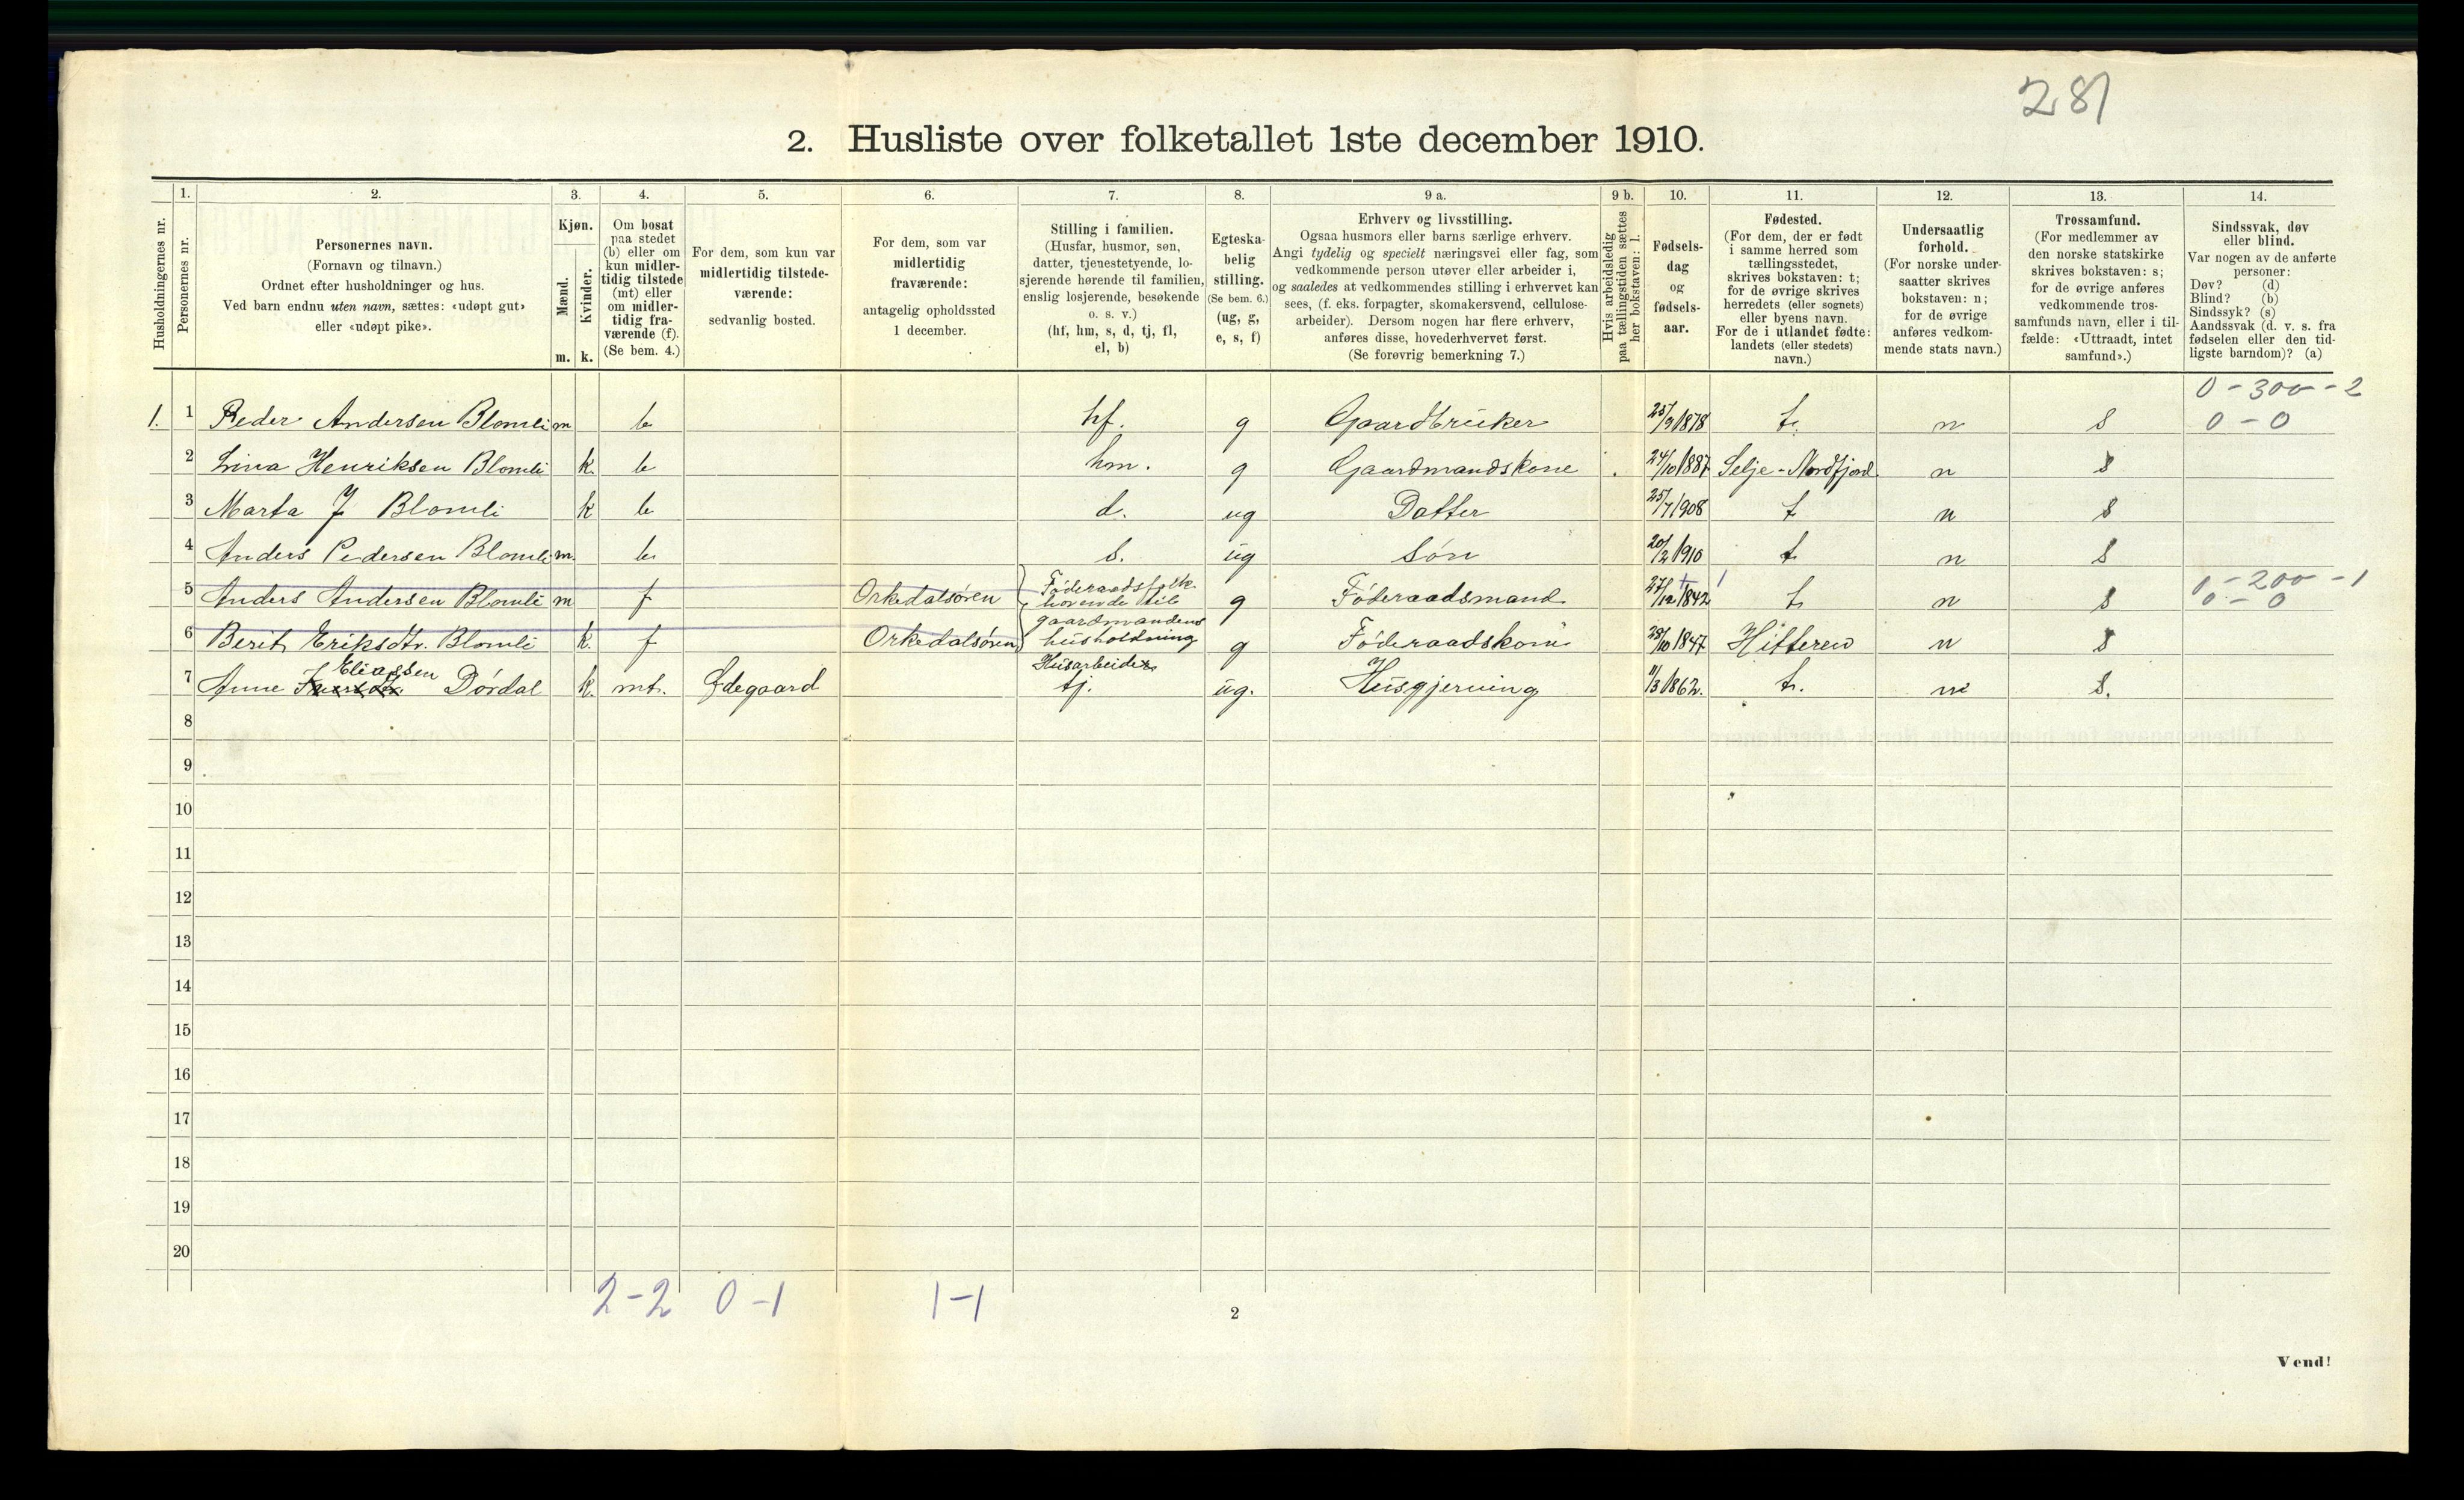 281
2. Husliste over folketallet 1ste december 1910.
Husholdningernes nr.
1.
Personernes nr.
2.
Personernes navn.
(Fornavn og tilnavn.)
Ordnet efter husholdninger og hus.
Ved barn endnu uten navn, sættes: «udøpt gut»
eller «udøpt pike».
3.
Kjøn.
Mænd.
Kvinder.
m. k.
4.
Om bosat
paa stedet
(b) eller om
kun midler-
tidig tilstede
(mt) eller
om midler-
tidig fra-
værende (f).
(Se bem. 4.)
5.
For dem, som kun var
midlertidig tilstede-
værende:
sedvanlig bosted.
6.
For dem, som var
midlertidig
fraværende:
antagelig opholdssted
1 december.
7.
Stilling i familien.
(Husfar, husmor, søn,
datter, tjenestetyende, lo-
sjerende hørende til familien,
enslig losjerende, besøkende
o. s. v.)
(hf, hm, s, d, tj, fl,
el, b)
8.
Egteska-
belig
stilling.
(Se bem. 6.)
(ug, g,
e, s, f)
9 a.
Erhverv og livsstilling.
Ogsaa husmors eller barns særlige erhverv.
Angi tydelig og specielt næringsvei eller fag, som
vedkommende person utøver eller arbeider i,
og saaledes at vedkommendes stilling i erhvervet kan
sees, (f. eks. forpagter, skomakersvend, cellulose-
arbeider). Dersom nogen har flere erhverv,
anføres disse, hovederhvervet først.
(Se forøvrig bemerkning 7.)
9 b.
Hvis arbeidsledig
paa tællingstiden sættes
her bokstaven: l.
10.
Fødsels-
dag
og
fødsels-
aar.
11.
Fødested.
(For dem, der er født
i samme herred som
tællingsstedet,
skrives bokstaven: t;
for de øvrige skrives
herredets (eller sognets)
eller byens navn.
For de i utlandet fødte:
landets (eller stedets)
navn.)
12.
Undersaatlig
forhold.
(For norske under-
saatter skrives
bokstaven: n;
for de øvrige
anføres vedkom-
mende stats navn.)
13.
Trossamfund.
(For medlemmer av
den norske statskirke
skrives bokstaven: s;
for de øvrige anføres
vedkommende tros-
samfunds navn, eller i til-
fælde: «Uttraadt, intet
samfund».)
14.
Sindssvak, døv
eller blind.
Var nogen av de anførte
personer:
Døv? (d)
Blind? (b)
Sindssyk? (s)
Aandssvak (d. v. s. fra
fødselen eller den tid-
ligste barndom)? (a)
0 - 300 - 2
1. 1 Peder Andersen Blomli m b hf. g Gaardbruker 25/9 1878 t. n s 0 - 0
2 Lina Henriksen Blomli k. b hm. g Gaardmandskone 24/10 1887 Selje - Nordfjord n s
3 Marta J Blomli k b d. ug Datter 25/7 1908 t n s
4 Anders Pedersen Blomli m. b. s. ug Søn 20/2 1910 t n s
0 - 200 - 1
5 Anders Andersen Blomli m f Orkedalsøren Føderaadsfolk hørende til g Føderaadsmand 27/12 1842 t. n s 0 - 0
6 Berit Eriksdtr. Blomli k. f Orkedalsøren gaardmandens husholdning g Føderaadskone 28/10 1847 Hitteren n s
Eliassen Husarbeider
7 Anne Dørdal k. mt. Ødegaard tj. ug. Husgjerning 11/3 1862. t. n s.
8
9
10
11
12
13
14
15
16
17
18
19
20
2-2 0-1 1-1
2
Vend!